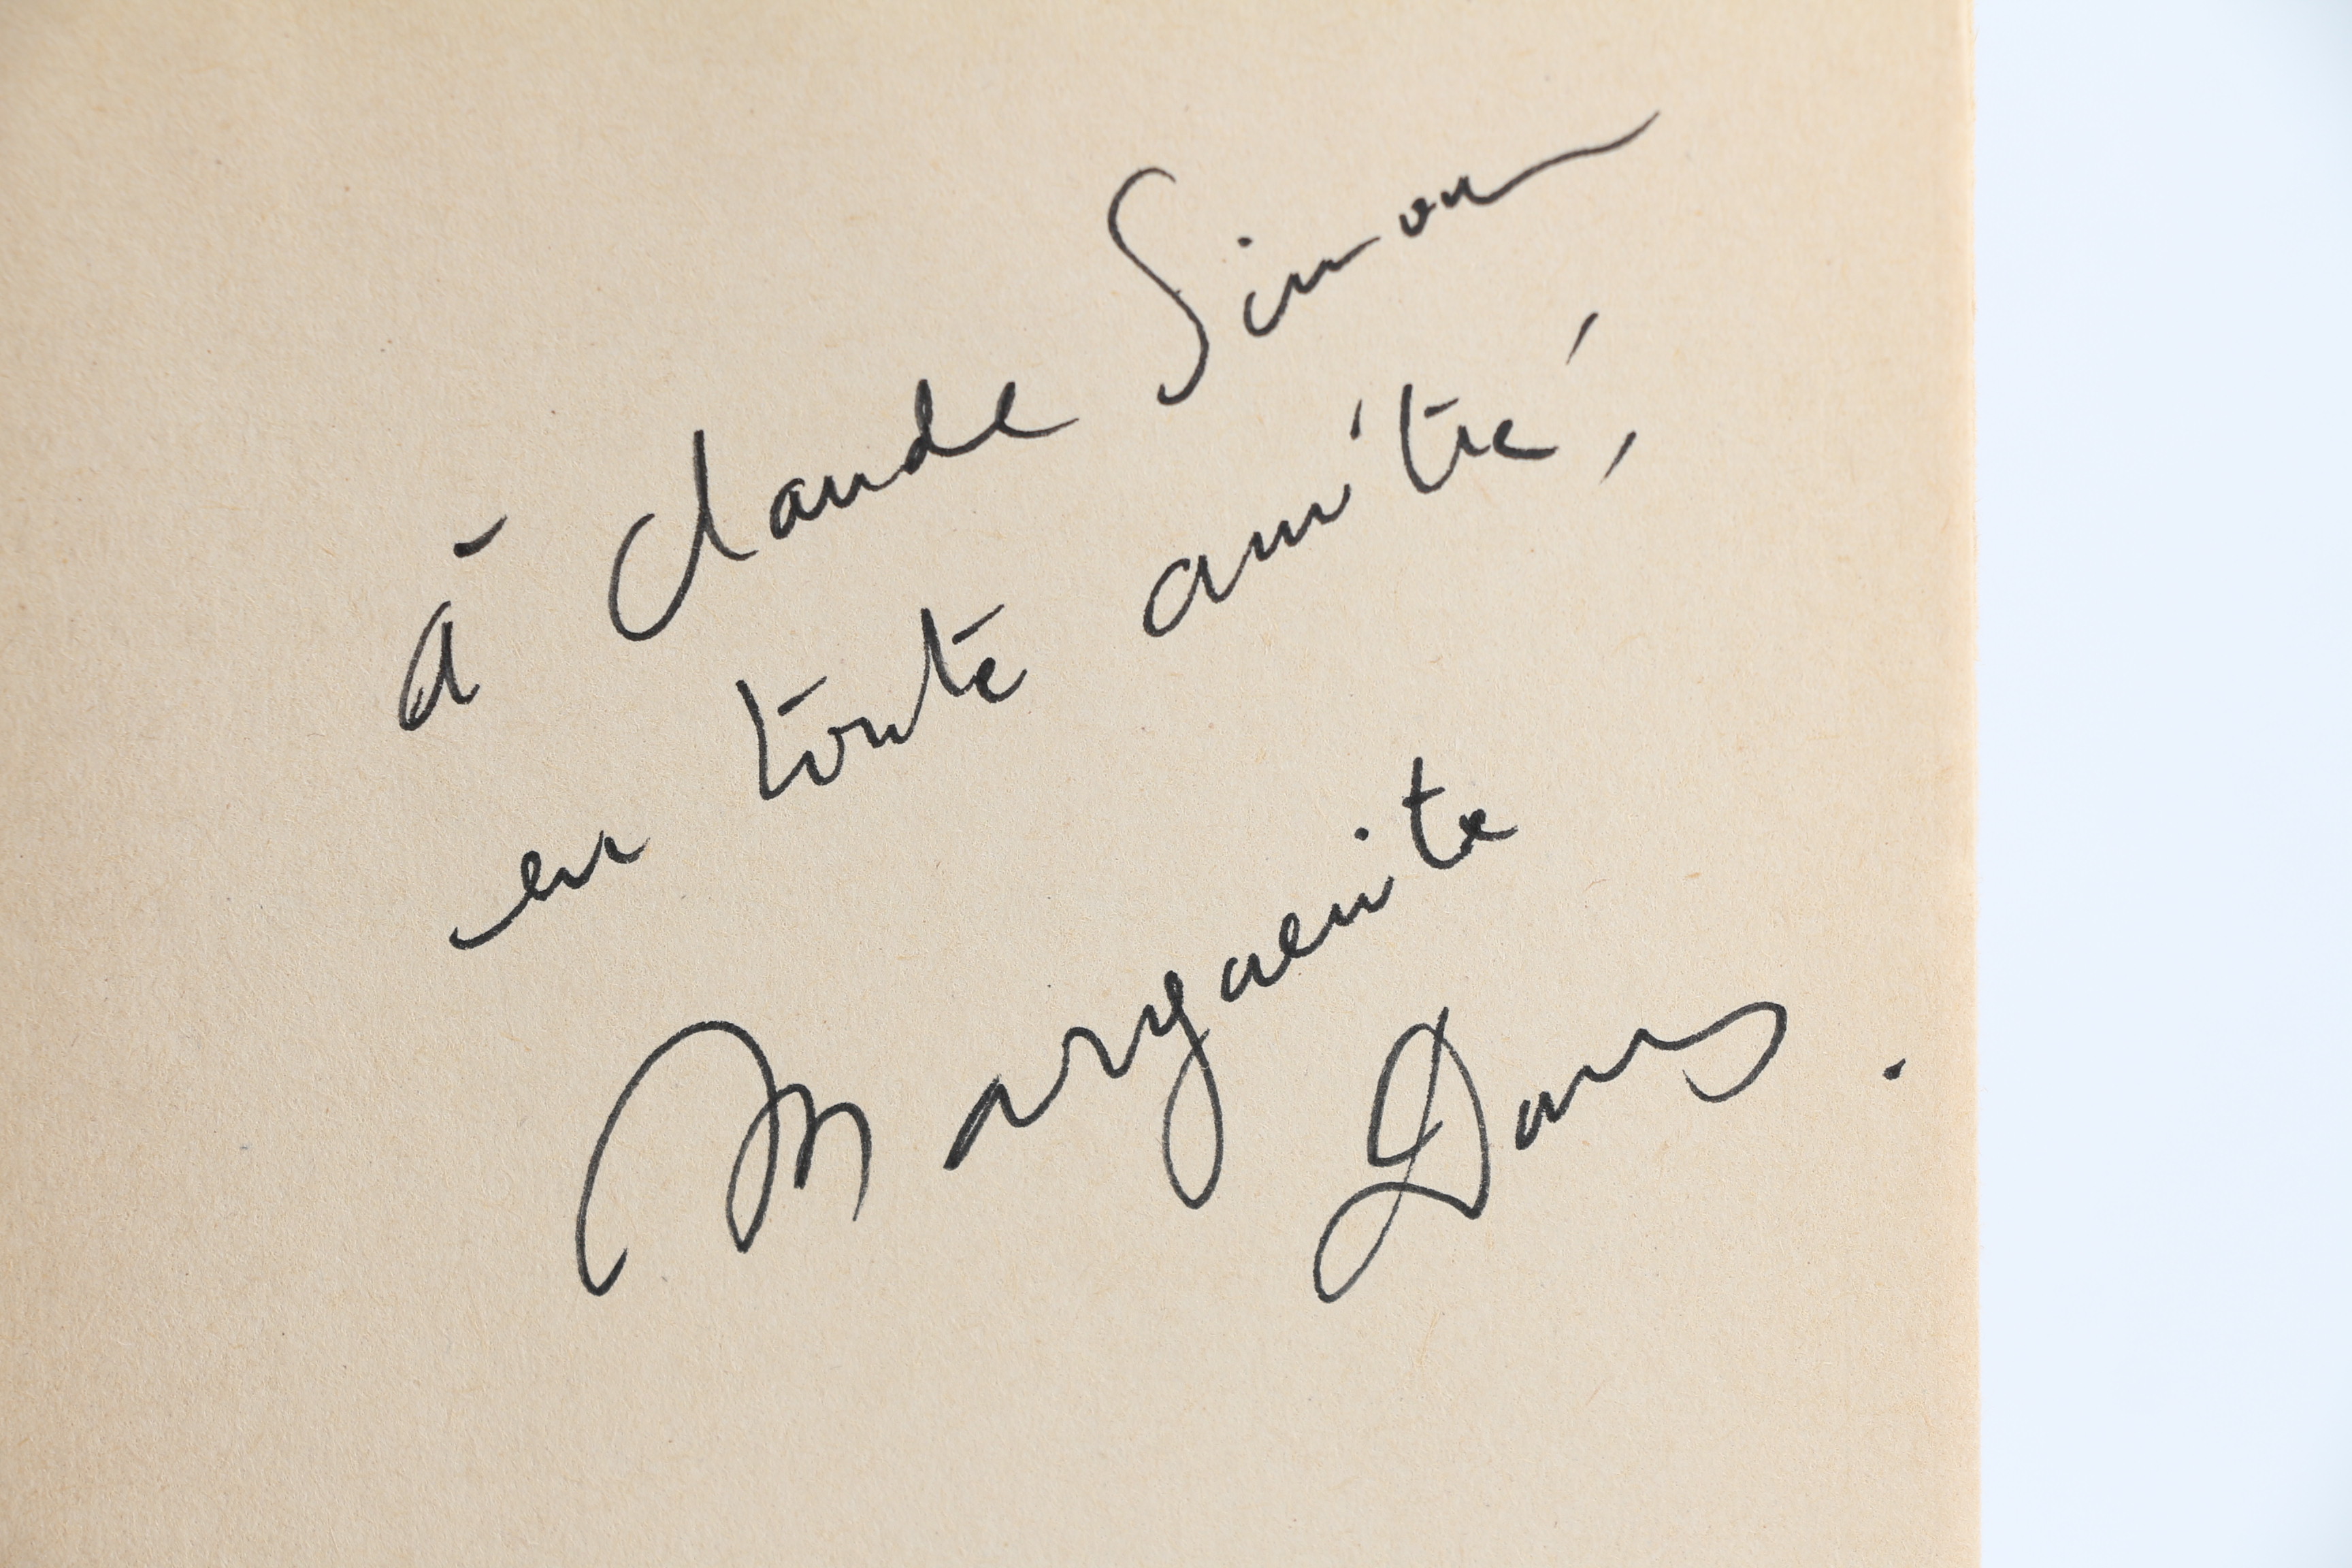 à Claude Simon
en toute amitié,
Marguerite
Duras.